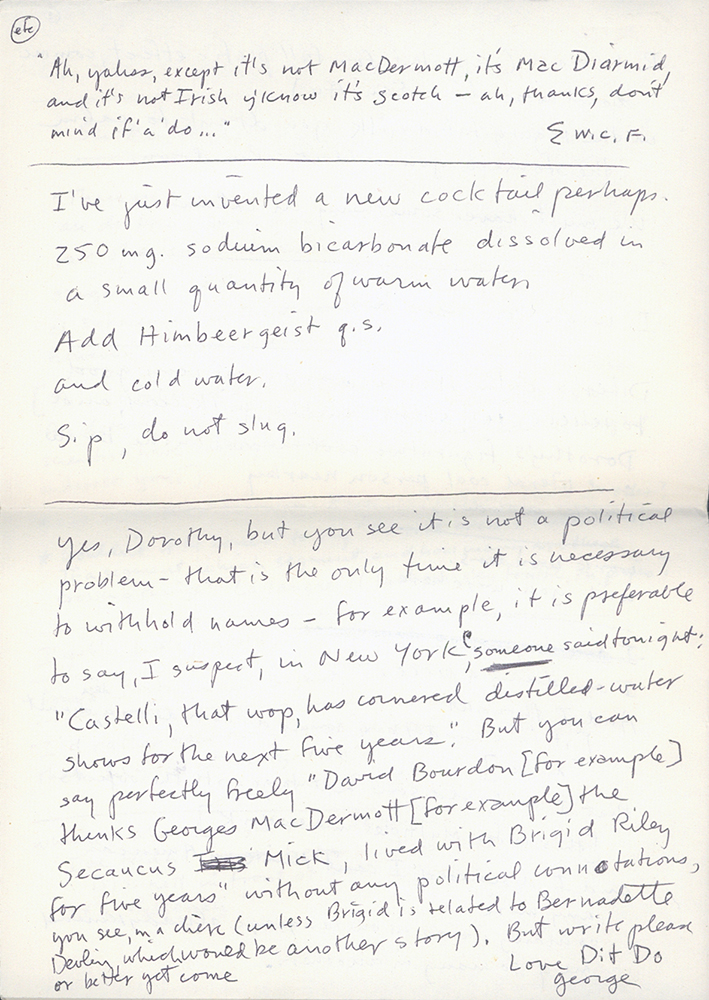 etc
"Ah, yahss, except it's not MacDermott, it's Mac Diarmid,
and it's not Irish y'know it's scotch – ah, thanks, don't
mind if 'a' do..."
Σ W.C.F.
I've just invented a new cocktail perhaps.
250 mg. sodium bicarbonate dissolved in
a small quantity of warm water.
Add Himbeergeist q.s.
and cold water.
Sip, do not slug.
Yes, Dorothy, but you see it is not a political
problem – that is the only time it is necessary
to withhold names – for example, it is preferable
to say, I suspect, in New York, someone said tonight:
"Castelli, that wop, has cornered distilled-water
shows for the next five years." But you can
say perfectly freely "David Bourdon [for example]
thinks Georges MacDermott [for example] the
Secaucus Mick, lived with Brigid Riley
for five years" without any political connotations,
you see, ma chère (unless Brigid is related to Bernadette
Devlin, which would be another story). But write please
or better yet come
Love Dit Do
george